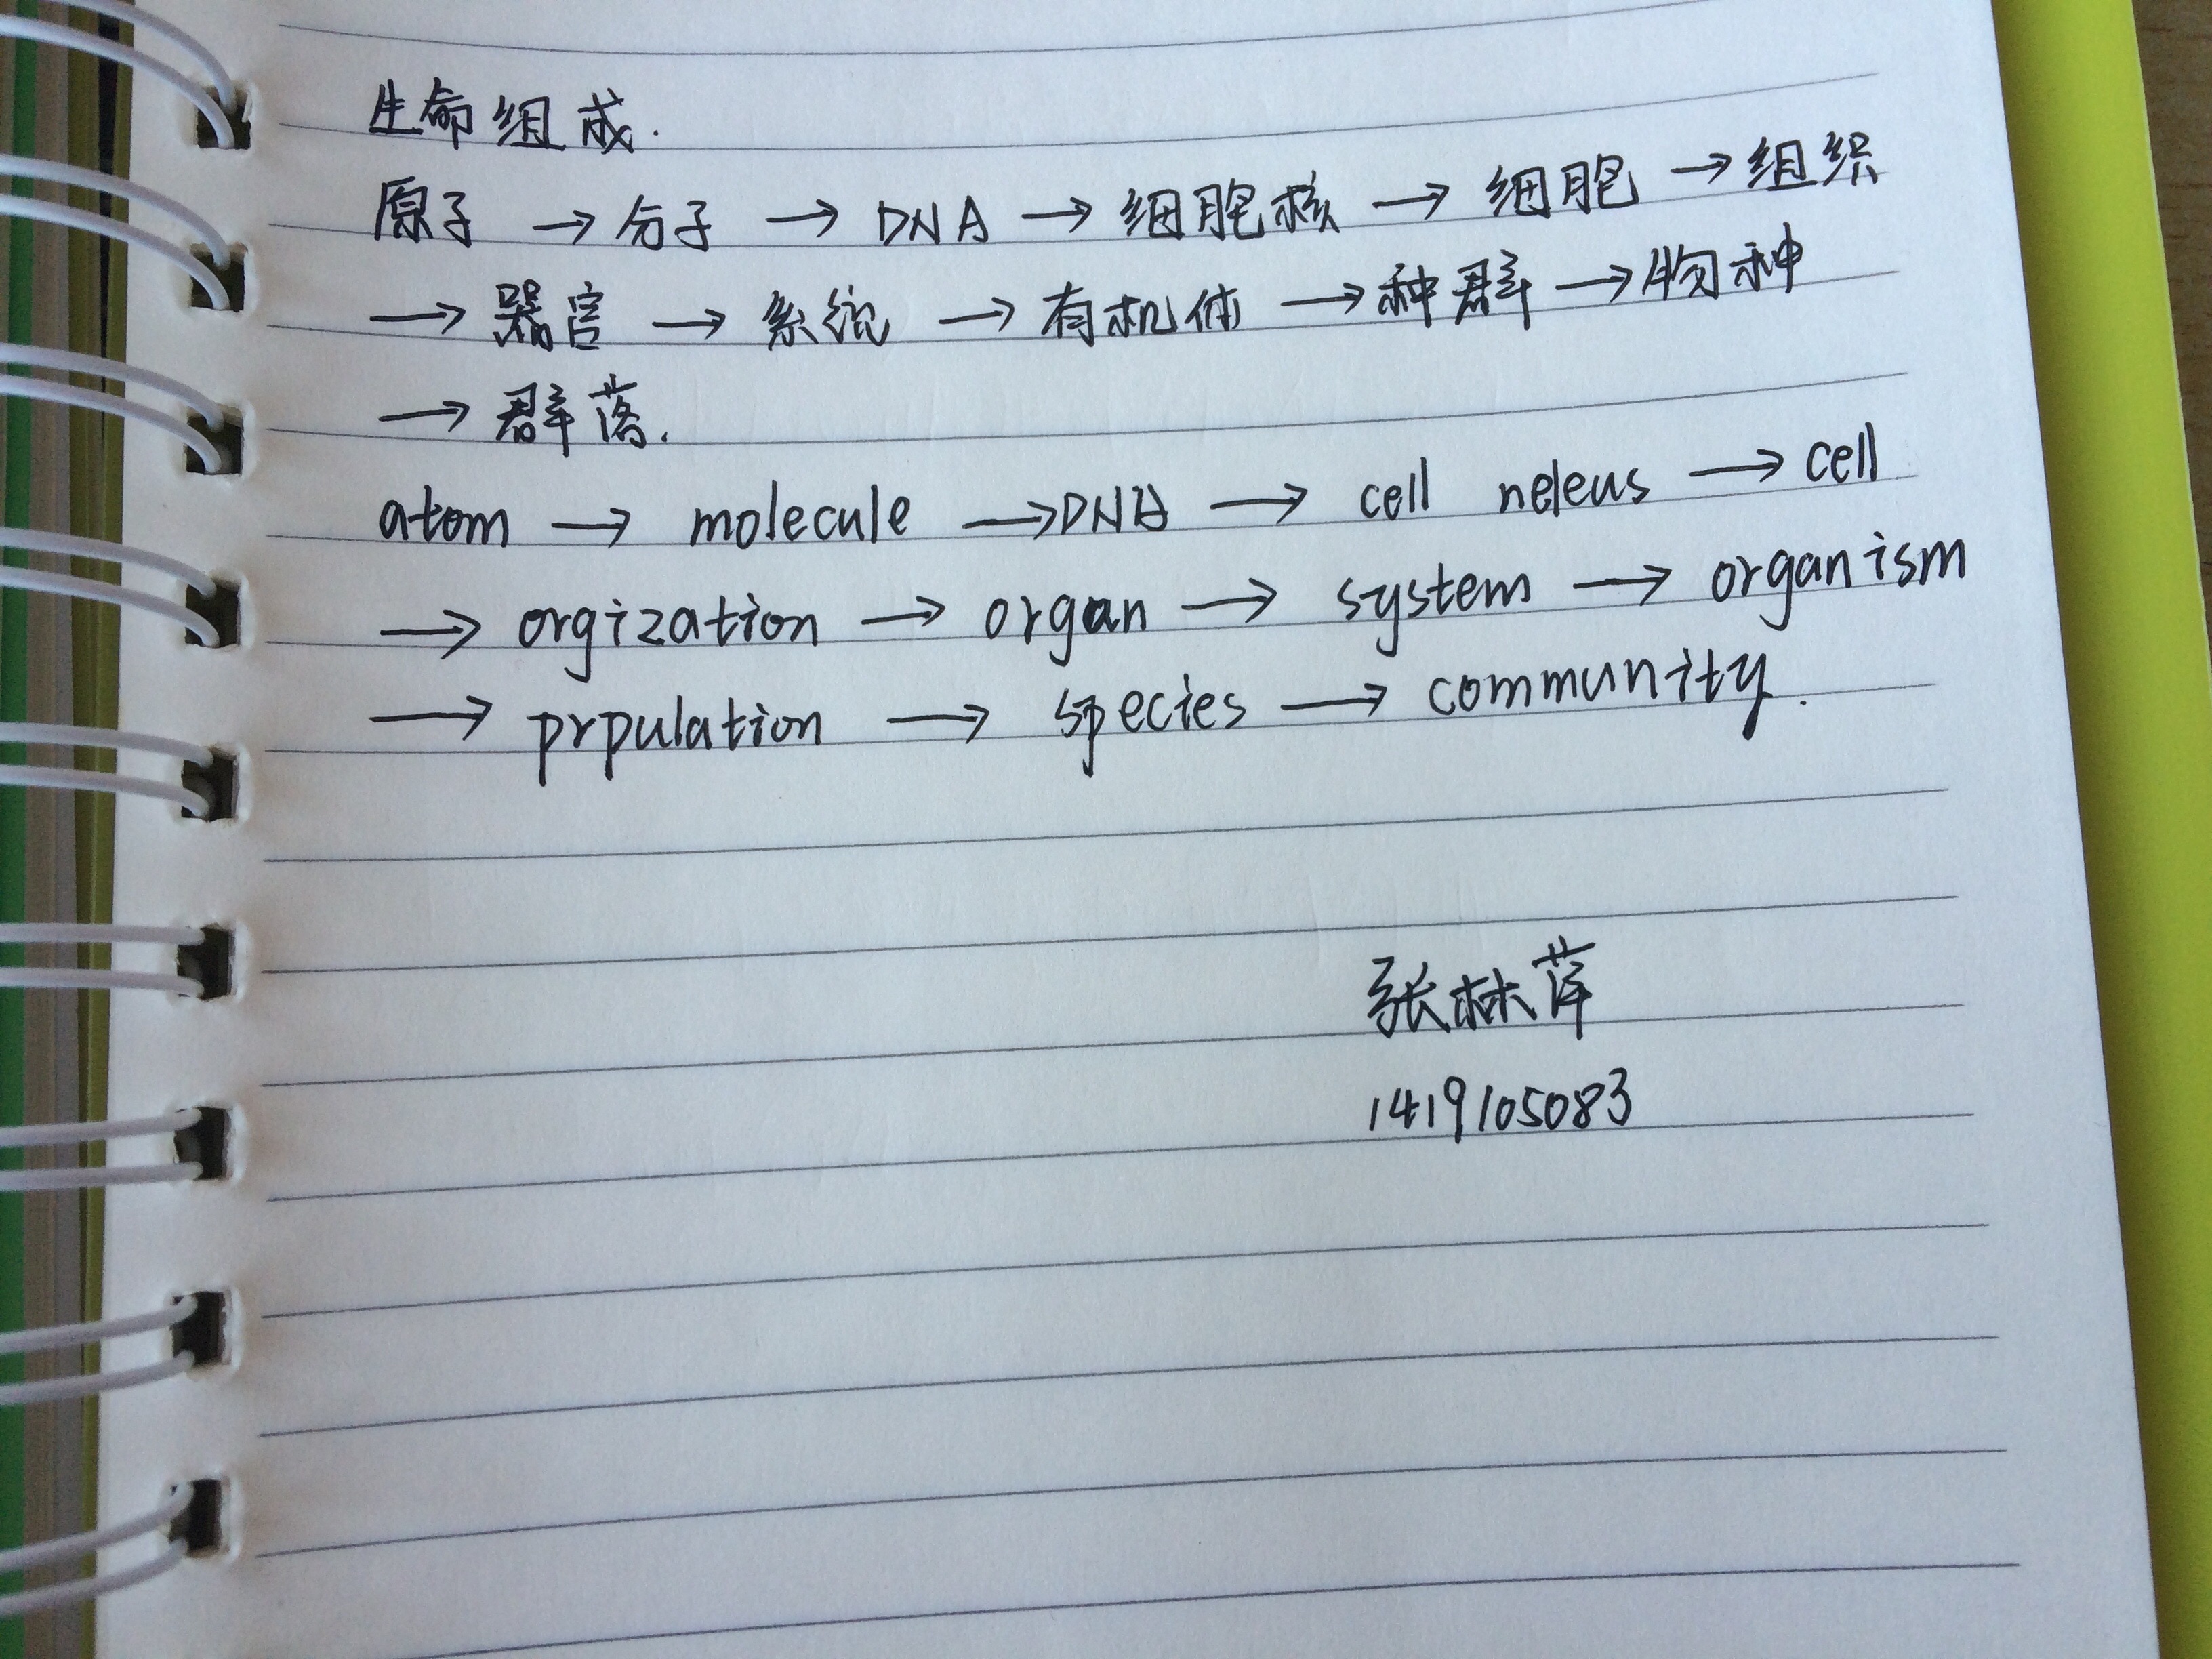 生命组成.
原子 → 分子 → DNA → 细胞核 → 细胞 → 组织
→ 器官 → 系统 → 有机体 → 种群 → 物种
→ 群落.
atom → molecule → DNA → cell neleus → cell
→ orgization → organ → system → organism
→ prpulation → species → community.
张林萍
1419105083